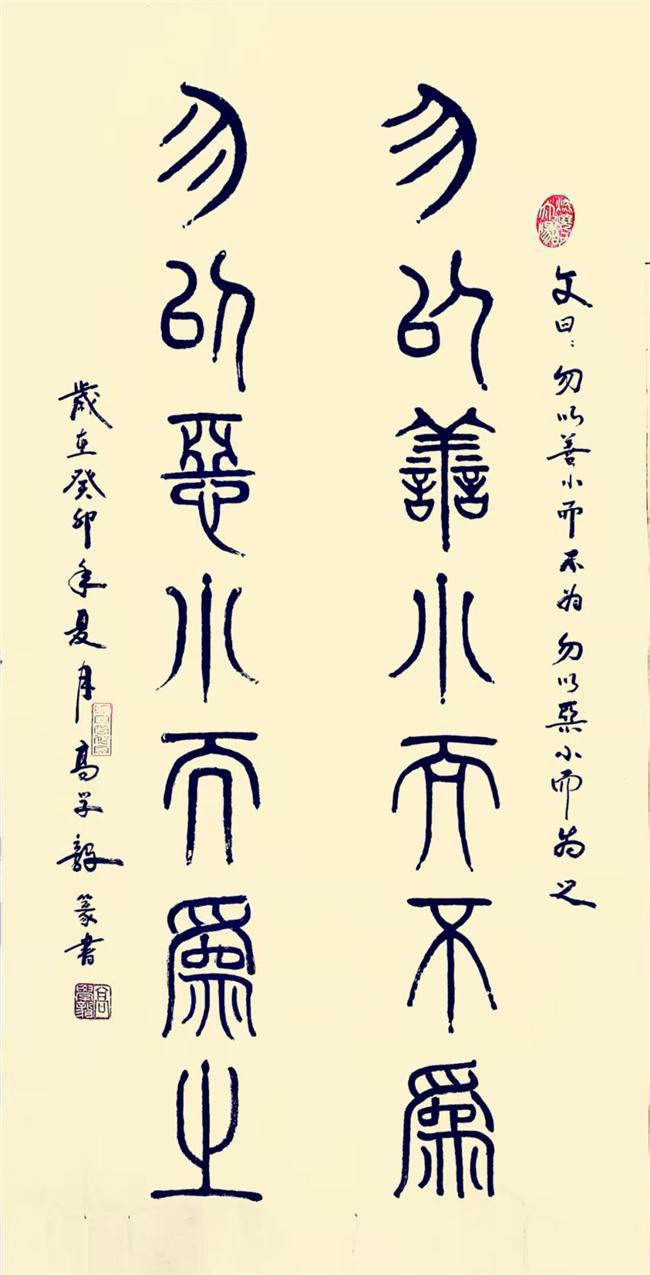 文曰：勿以善小而不为勿以恶小而為之
勿以譱小而不爲
勿以惡小而爲之
歳在癸卯年夏月高学毅篆書